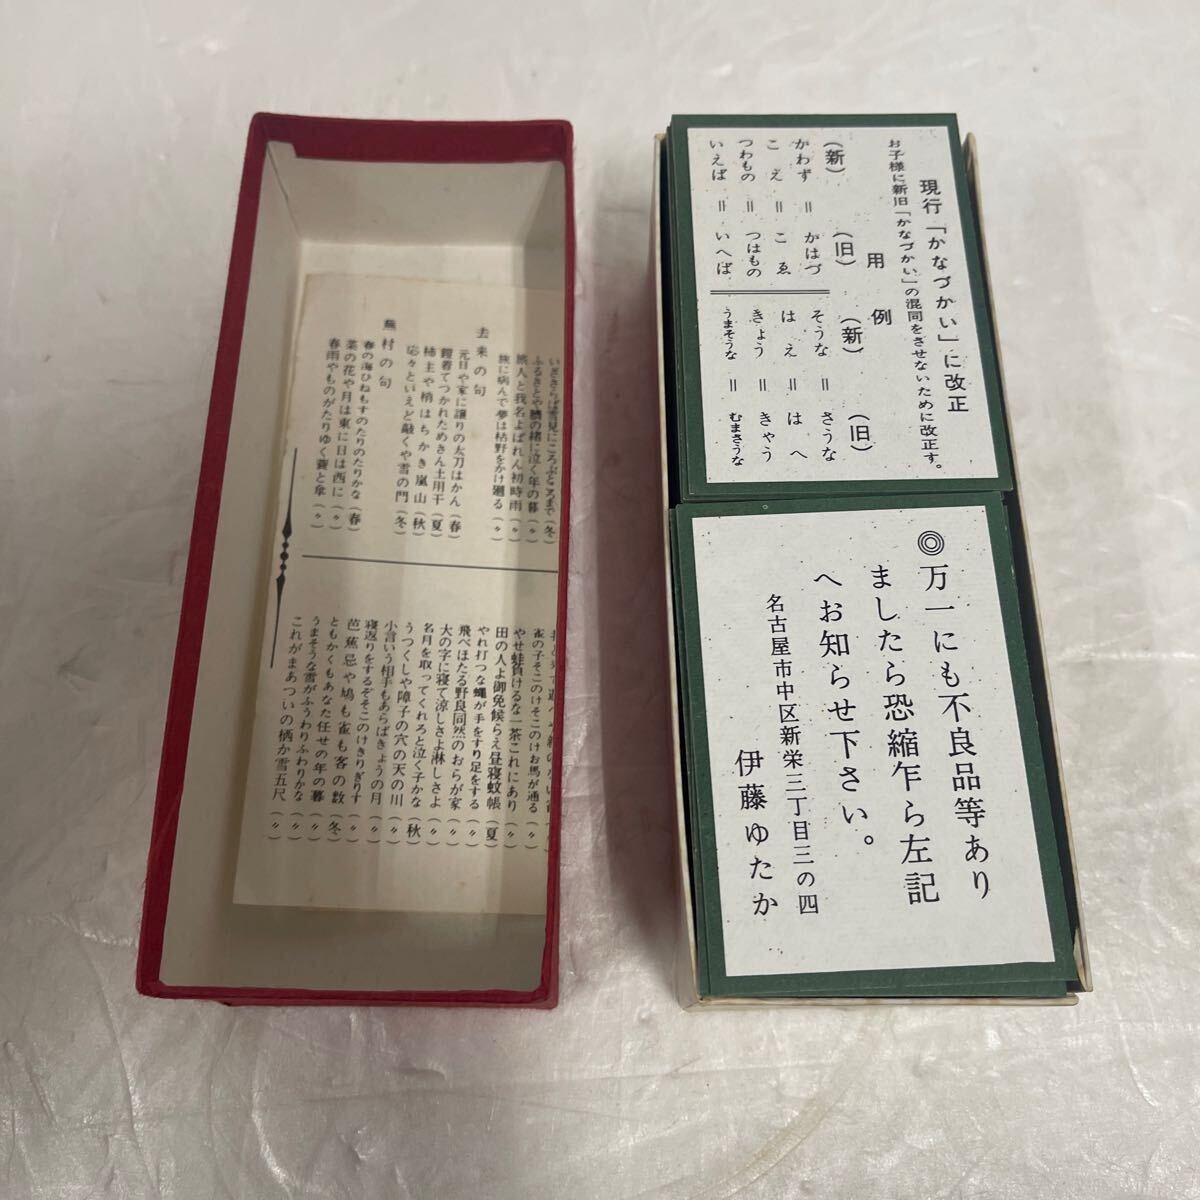 いざさらば雪見にころぶところまで(冬)
ふるさとや臍の緒に泣く年の暮(〃)
旅人と我名よばれん初時雨(〃)
旅に病んで夢は枯野をかけ廻る(〃)
去来の句
元日や家に譲りの太刀はかん(春)
鎧着てつかれためさん土用干(夏)
柿主や梢はちかき嵐山(秋)
応々といえど敲くや雪の門(冬)
蕪村の句
春の海ひねもすのたりのたりかな(春)
菜の花や月は東に日は西に(〃)
春雨やものがたりゆく蓑と傘(〃)
雀の子そこのけそこのけお馬が通る(〃)
やせ蛙負けるな一茶これにあり(〃)
田の人よ御免候らえ昼寝蚊帳(夏)
やれ打つな蠅が手をすり足をする(〃)
飛べほたる野良同然のおらが家(〃)
大の字に寝て涼しさよ淋しさよ(〃)
名月を取ってくれろと泣く子かな(秋)
うつくしや障子の穴の天の川(〃)
小言いう相手もあらばきょうの月(〃)
寝返りをするぞそこのけきりぎりす(〃)
芭蕉忌や鳩も雀も客の数(冬)
ともかくもあなた任せの年の暮(〃)
うまそうな雪がふうわりふわりかな(〃)
これがまあついの栖か雪五尺(〃)
現行「かなづかい」に改正
お子様に新旧「かなづかい」の混同をさせないために改正す。
用例
(新) (旧) (新) (旧)
かわず=かはづ そうな=さうな
こえ=こゑ はえ=はへ
つわもの=つはもの きょう=きゃう
いえば=いへば うまそうな=むまさうな
◎万一にも不良品等あり
ましたら恐縮乍ら左記
へお知らせ下さい。
名古屋市中区新栄三丁目三の四
伊藤ゆたか